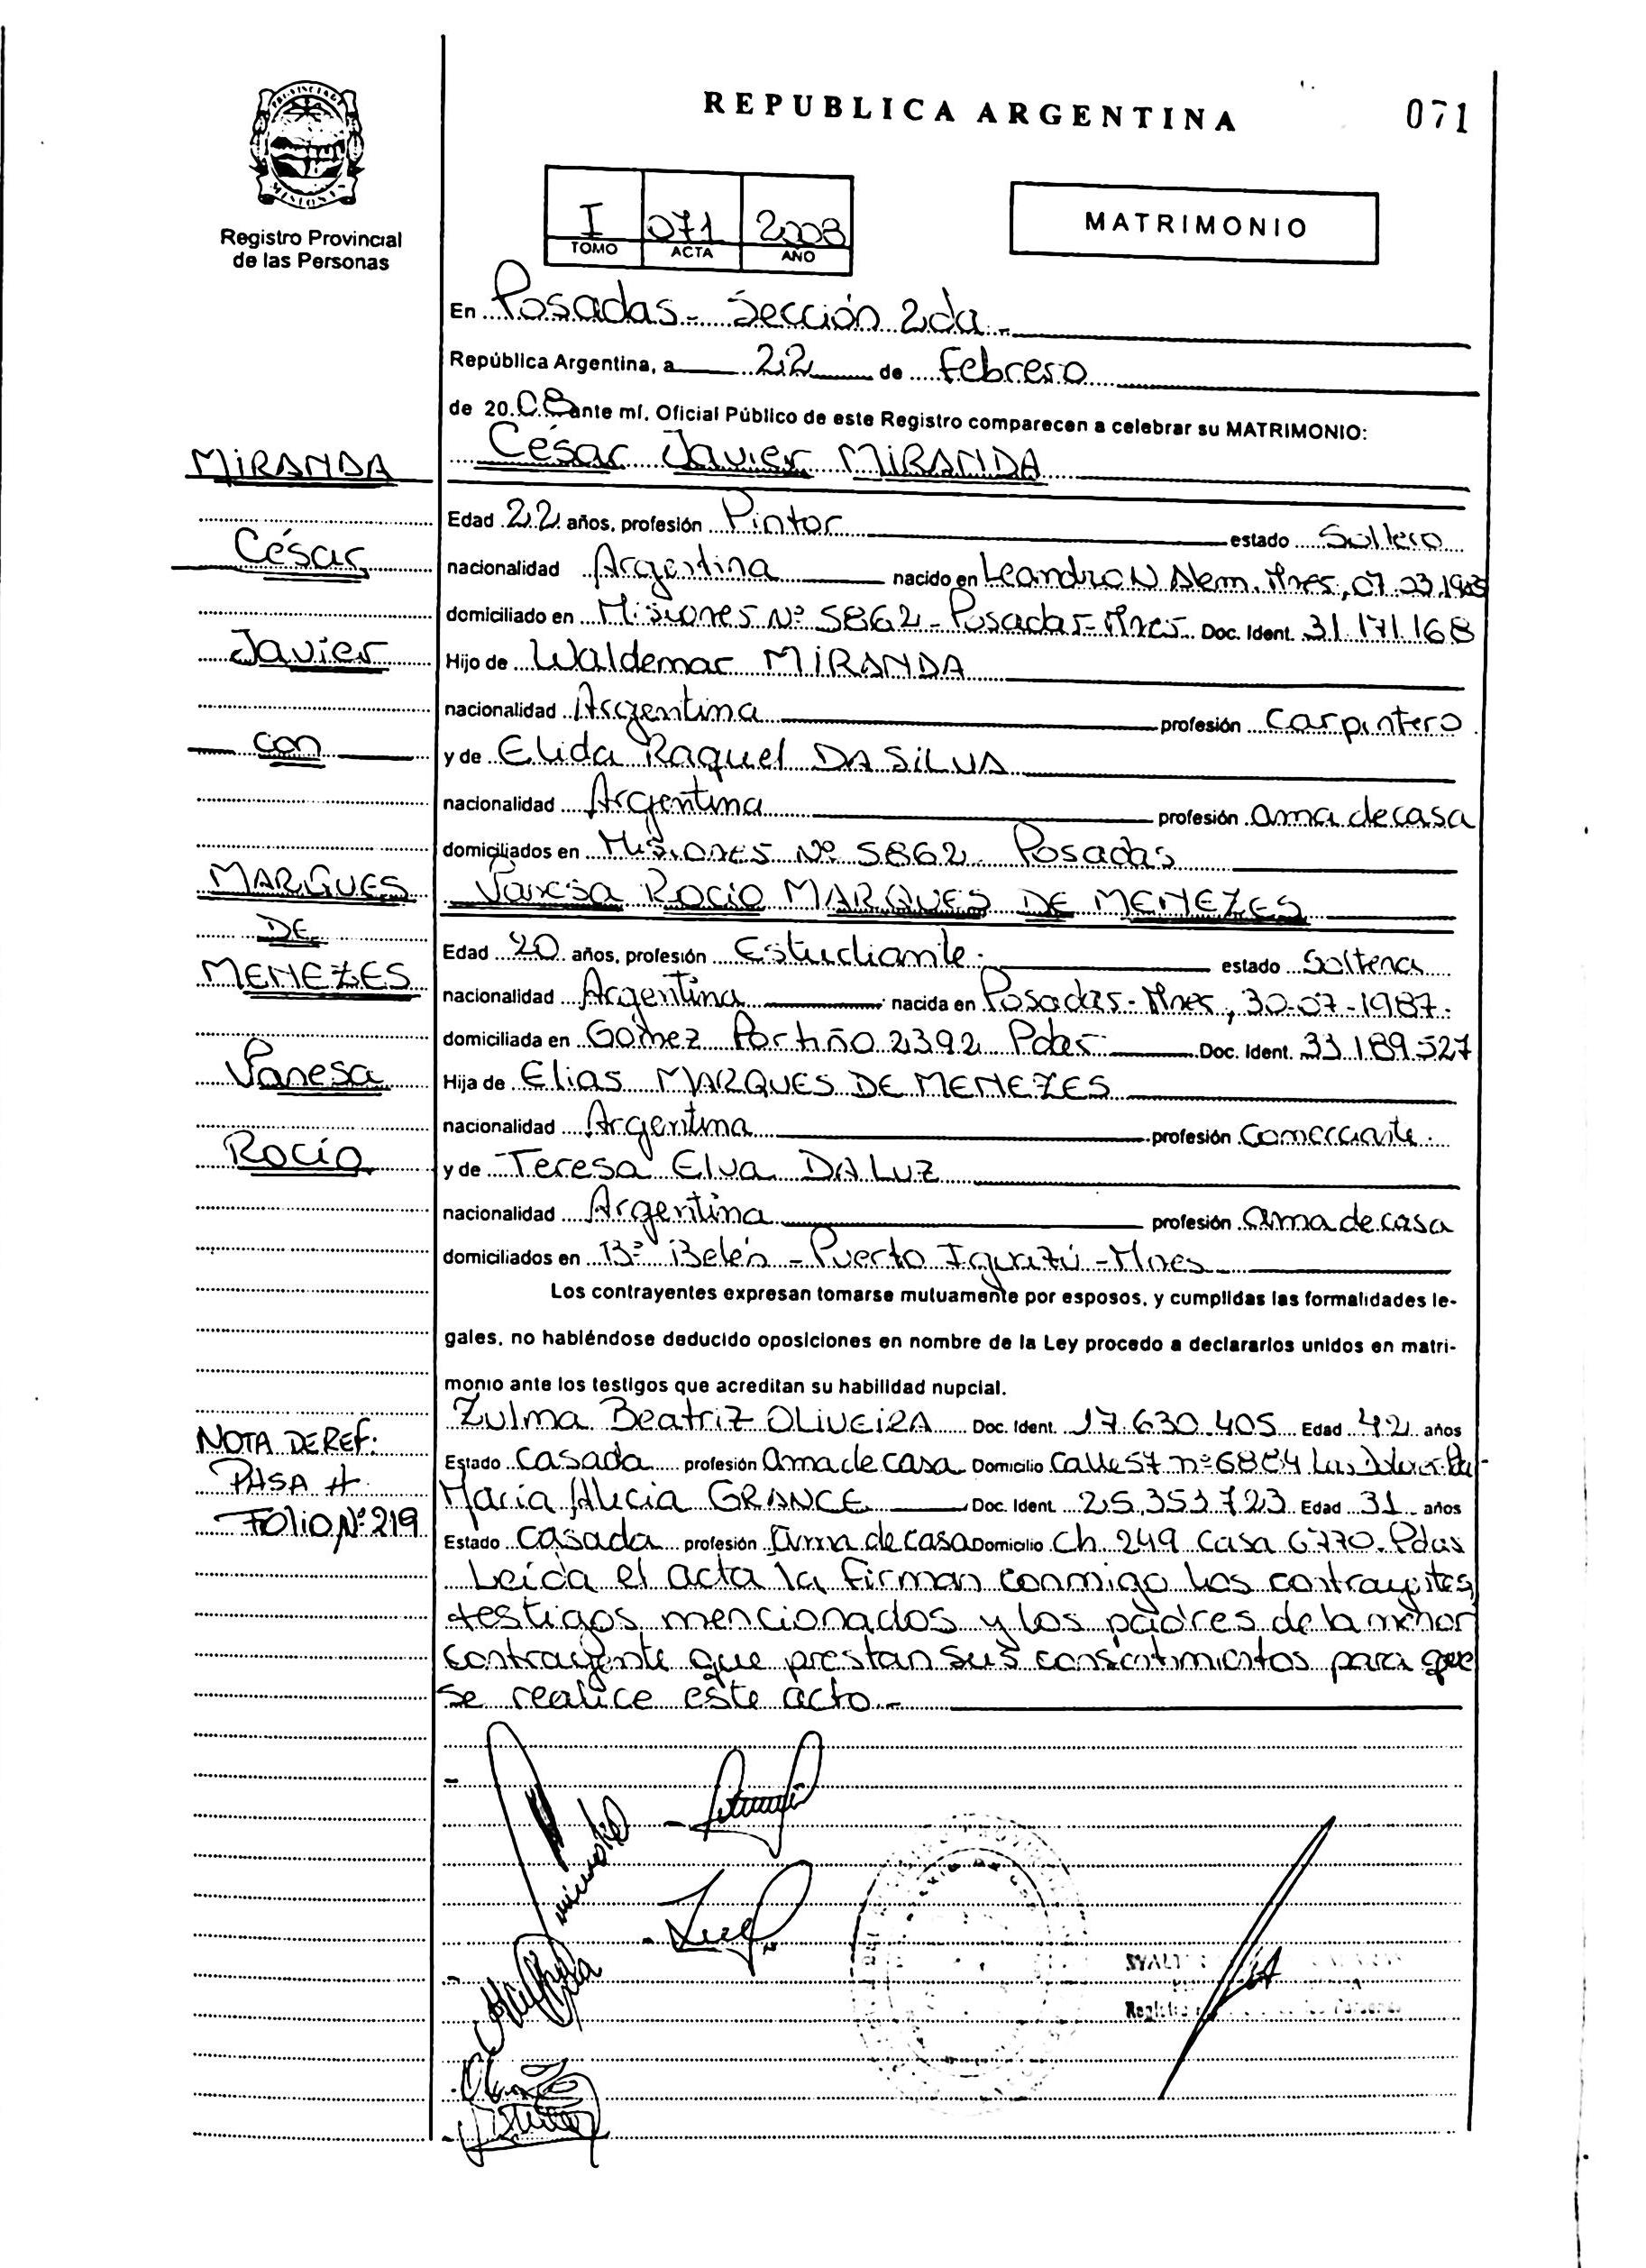 REPUBLICA ARGENTINA
071
PROVINCIA DE
MISIONES
Registro Provincial
de las Personas
I 071 2008
TOMO ACTA AÑO
MATRIMONIO
En Posadas - Sección 2da -
República Argentina, a 22 de Febrero
de 20 08 ante mí, Oficial Público de este Registro comparecen a celebrar su MATRIMONIO:
MIRANDA
César Javier MIRANDA
Edad 22 años, profesión Pintor estado Soltero
César
nacionalidad Argentina nacido en Leandro N. Alem. Mnes, 07.03.1985
domiciliado en Misiones Nº 5862 - Posadas - Mnes Doc. Ident. 31.171.168
Javier
Hijo de Waldemar MIRANDA
nacionalidad Argentina profesión Carpintero
con
y de Elida Raquel DA SILVA
nacionalidad Argentina profesión ama de casa
domiciliados en Misiones Nº 5862 Posadas
MARQUES
Vanesa Rocío MARQUES DE MENEZES
DE
Edad 20 años, profesión Estudiante. estado Soltera
MENEZES
nacionalidad Argentina nacida en Posadas - Mnes, 30-07-1987.
domiciliada en Gomez Portiño 2392 Pdas Doc. Ident. 33.189.527
Vanesa
Hija de Elias MARQUES DE MENEZES
nacionalidad Argentina profesión Comerciante.
Rocío
y de Teresa Elva DA LUZ
nacionalidad Argentina profesión ama de casa
domiciliados en Bº Belén - Puerto Iguazú - Mnes
Los contrayentes expresan tomarse mutuamente por esposos, y cumplidas las formalidades le-
gales, no habiéndose deducido oposiciones en nombre de la Ley procedo a declararlos unidos en matri-
monio ante los testigos que acreditan su habilidad nupcial.
Zulma Beatriz OLIVEIRA Doc. Ident. 17.630.405 Edad 42 años
NOTA DE REF:
Estado Casada profesión Ama de casa Domicilio Calle 57 nº 6884
PASA A
María Alicia GRANCE Doc. Ident. 25.353.723 Edad 31 años
FOLIO Nº 219
Estado Casada profesión Ama de casa Domicilio Ch. 249 Casa 6770. Pdas
Leída el acta la firman conmigo los contrayentes,
testigos mencionados y los padres de la menor
contrayente que prestan sus consentimientos para que
se realice este acto.-